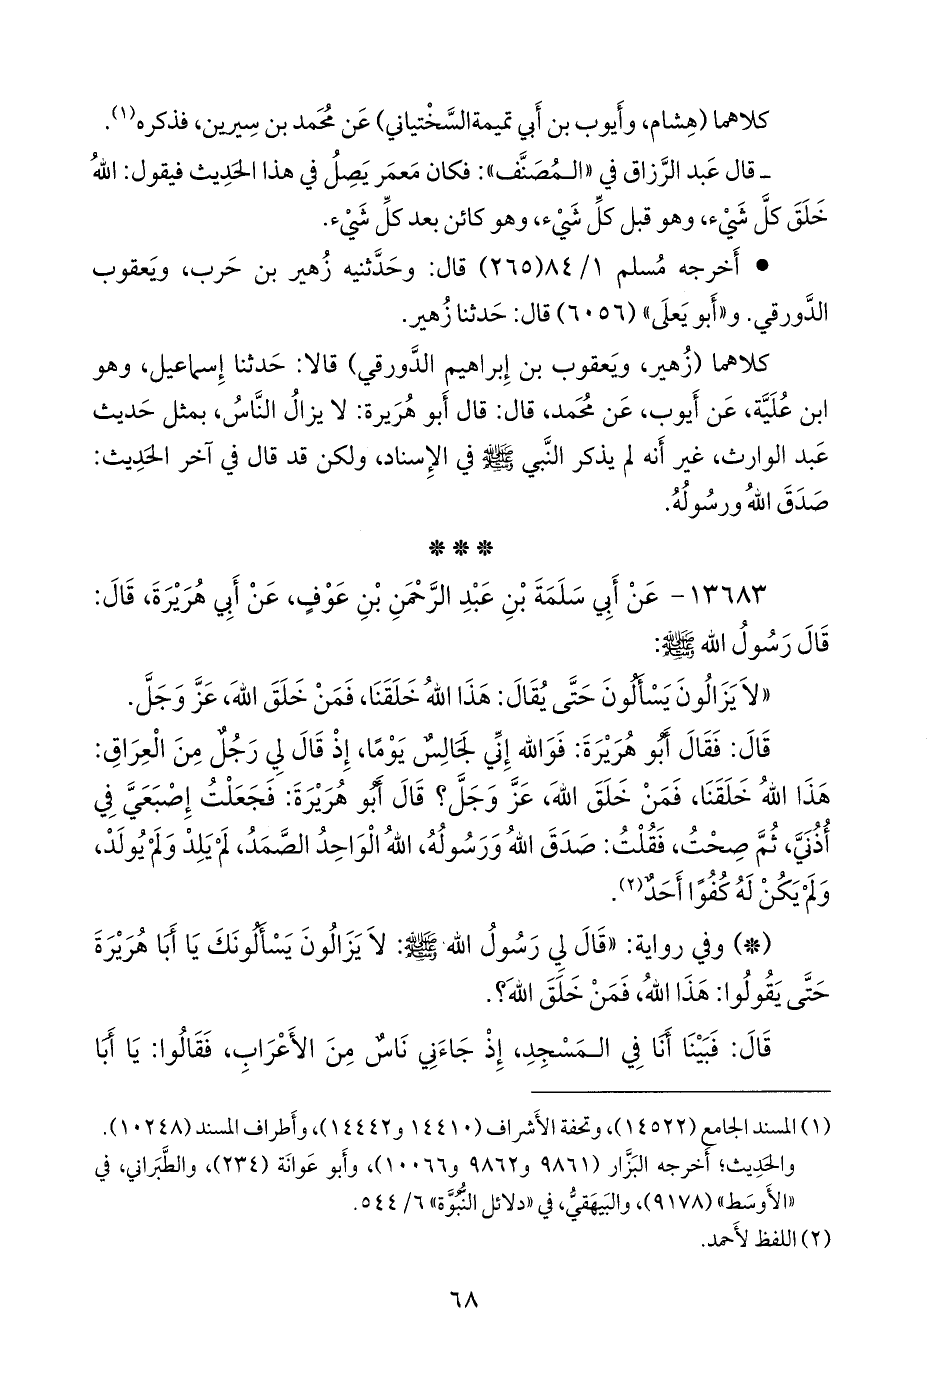 كلاهما (هِشام، وأَيوب بن أَبي تميمة السَّخْتياني) عَن مُحمد بن سِيرين، فذكره(١).
ـ قال عَبد الرَّزاق في «الـمُصَنَّف»: فكان مَعمَر يَصِلُ في هذا الحَدِيث فيقول: اللهُ
خَلَقَ كلَّ شَيْء، وهو قبل كلِّ شَيْء، وهو كائن بعد كلِّ شَيْء.
• أَخرجه مُسلم ١/ ٨٤(٢٦٥) قال: وحَدَّثنيه زُهير بن حَرب، ويَعقوب
الدَّورقي. و«أَبو يَعلَى» (٦٠٥٦) قال: حَدثنا زُهير.
كلاهما (زُهير، ويَعقوب بن إِبراهيم الدَّورقي) قالا: حَدثنا إِسماعيل، وهو
ابن عُلَيَّة، عَن أَيوب، عَن مُحمد، قال: قال أَبو هُرَيرة: لا يزالُ النَّاسُ، بمثل حَديث
عَبد الوارث، غير أَنه لم يذكر النَّبي ﷺ في الإِسناد، ولكن قد قال في آخر الحَدِيث:
صَدَقَ اللهُ ورسُولُهُ.
* * *
١٣٦٨٣- عَنْ أَبِي سَلَمَةَ بْنِ عَبْدِ الرَّحْمَنِ بْنِ عَوْفٍ، عَنْ أَبِي هُرَيْرَةَ، قَالَ:
قَالَ رَسُولُ الله ﷺ:
«لاَ يَزَالُونَ يَسْأَلُونَ حَتَّى يُقَالَ: هَذَا اللهُ خَلَقَنَا، فَمَنْ خَلَقَ اللهَ، عَزَّ وَجَلَّ.
قَالَ: فَقَالَ أَبُو هُرَيْرَةَ: فَوَالله إِنِّي لَجَالِسٌ يَوْمًا، إِذْ قَالَ لِي رَجُلٌ مِنَ الْعِرَاقِ:
هَذَا اللهُ خَلَقَنَا، فَمَنْ خَلَقَ اللهَ، عَزَّ وَجَلَّ؟ قَالَ أَبُو هُرَيْرَةَ: فَجَعَلْتُ إِصْبَعَيَّ فِي
أُذُنَيَّ، ثُمَّ صِحْتُ، فَقُلْتُ: صَدَقَ اللهُ وَرَسُولُهُ، اللهُ الْوَاحِدُ الصَّمَدُ، لَمْ يَلِدْ وَلَمْ يُولَدْ،
وَلَمْ يَكُنْ لَهُ كُفُوًا أَحَدٌ(٢).
(*) وفي رواية: «قَالَ لِي رَسُولُ الله ﷺ: لاَ يَزَالُونَ يَسْأَلُونَكَ يَا أَبَا هُرَيْرَةَ
حَتَّى يَقُولُوا: هَذَا اللهُ، فَمَنْ خَلَقَ اللهَ؟.
قَالَ: فَبَيْنَا أَنَا فِي الـمَسْجِدِ، إِذْ جَاءَنِي نَاسٌ مِنَ الأَعْرَابِ، فَقَالُوا: يَا أَبَا
(١) المسند الجامع (١٤٥٢٢)، وتحفة الأشراف (١٤٤١٠ و١٤٤٤٢)، وأَطراف المسند (١٠٢٤٨).
والحَدِيث؛ أَخرجه البَزَّار (٩٨٦١ و٩٨٦٢ و١٠٠٦٦)، وأَبو عَوانَة (٢٣٤)، والطَّبَراني، في
«الأَوسَط» (٩١٧٨)، والبَيهَقيُّ، في «دلائل النُّبُوَّة» ٦/ ٥٤٤.
(٢) اللفظ لأَحمد.
٦٨